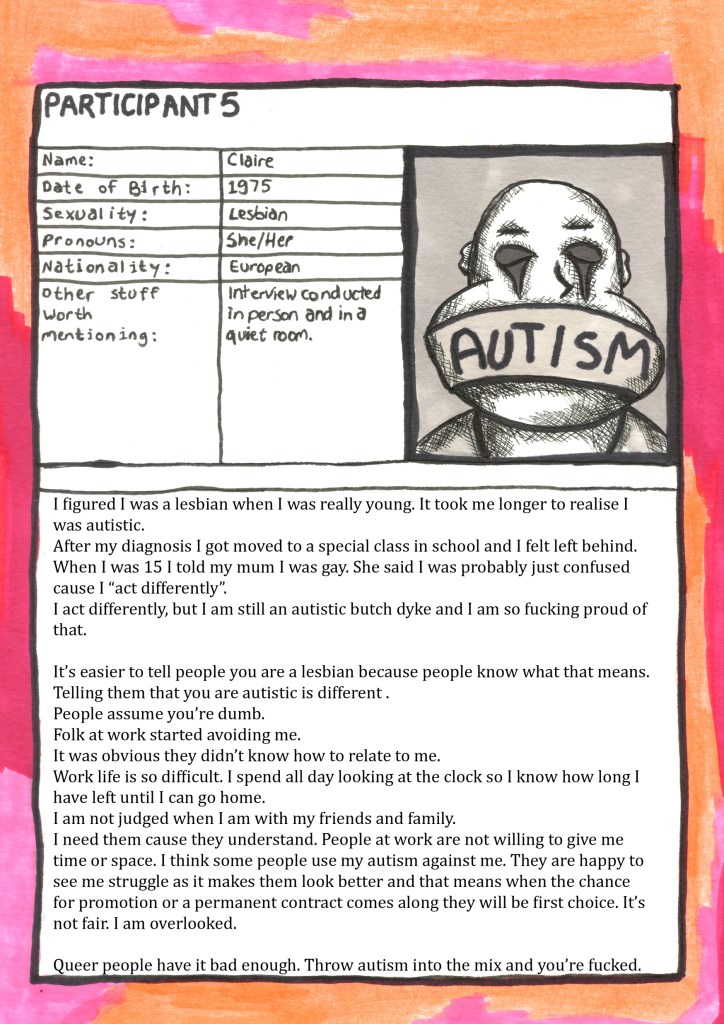 PARTICIPANT 5
Name: Claire
Date of Birth: 1975
Sexuality: Lesbian
Pronouns: She/Her
Nationality: European
Other stuff Interview conducted
worth in person and in a
mentioning: quiet room.
AUTISM
I figured I was a lesbian when I was really young. It took me longer to realise I
was autistic.
After my diagnosis I got moved to a special class in school and I felt left behind.
When I was 15 I told my mum I was gay. She said I was probably just confused
cause I “act differently”.
I act differently, but I am still an autistic butch dyke and I am so fucking proud of
that.
It’s easier to tell people you are a lesbian because people know what that means.
Telling them that you are autistic is different .
People assume you’re dumb.
Folk at work started avoiding me.
It was obvious they didn’t know how to relate to me.
Work life is so difficult. I spend all day looking at the clock so I know how long I
have left until I can go home.
I am not judged when I am with my friends and family.
I need them cause they understand. People at work are not willing to give me
time or space. I think some people use my autism against me. They are happy to
see me struggle as it makes them look better and that means when the chance
for promotion or a permanent contract comes along they will be first choice. It’s
not fair. I am overlooked.
Queer people have it bad enough. Throw autism into the mix and you’re fucked.